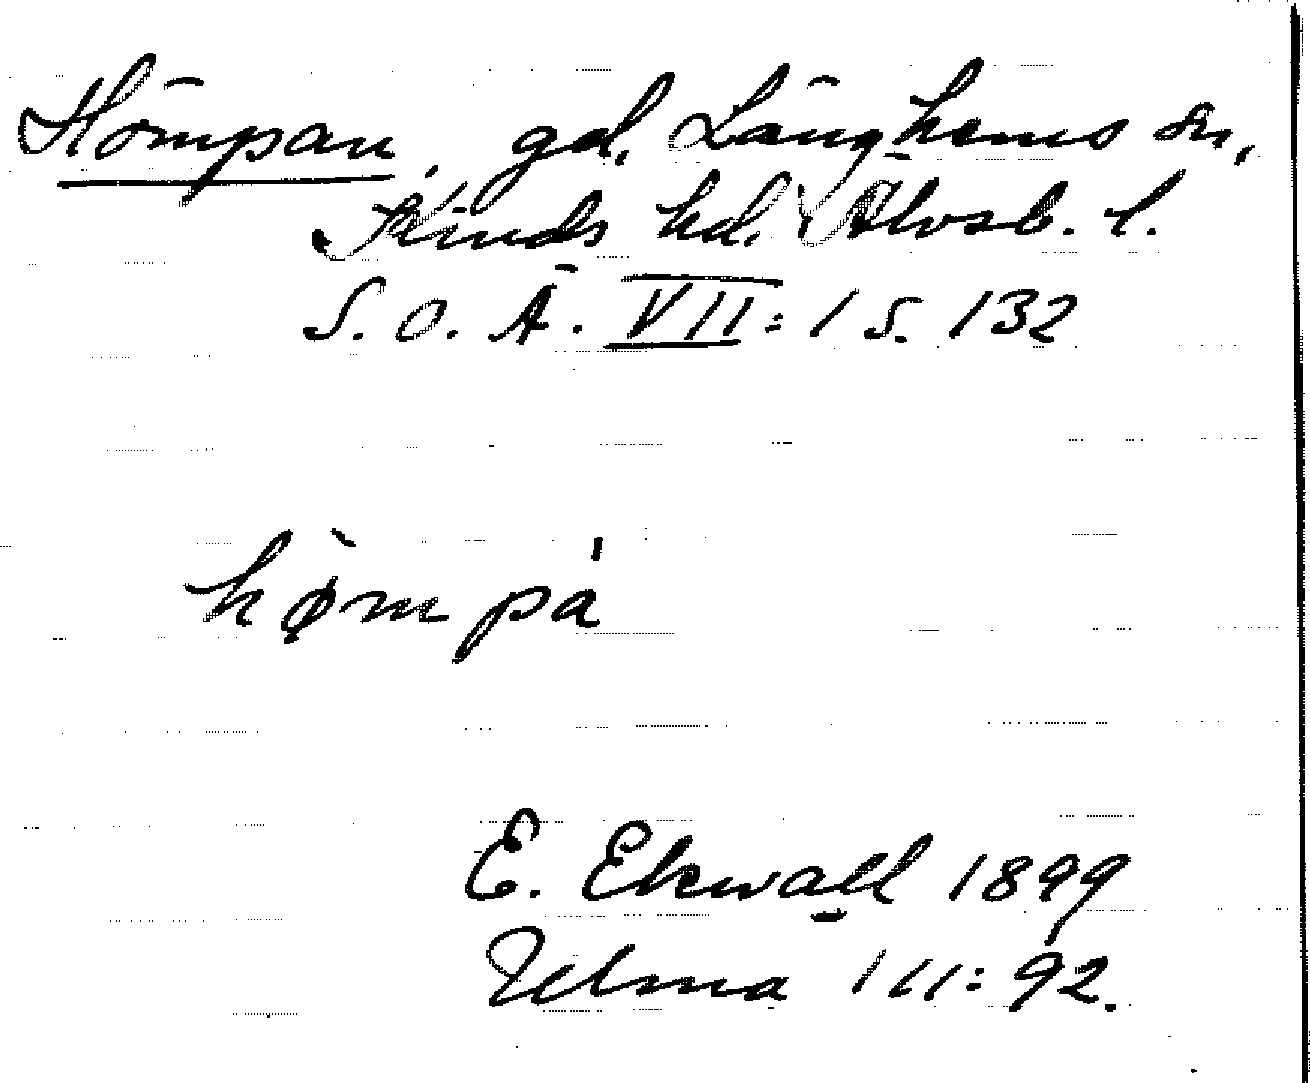 Hömpan, gd, Länghems sn,
Kinds hd. Älvsb. l.
S.O.Ä. VII:1 s. 132
hø̀mpa'
E. Ekwall 1899
Ulma 111:92.